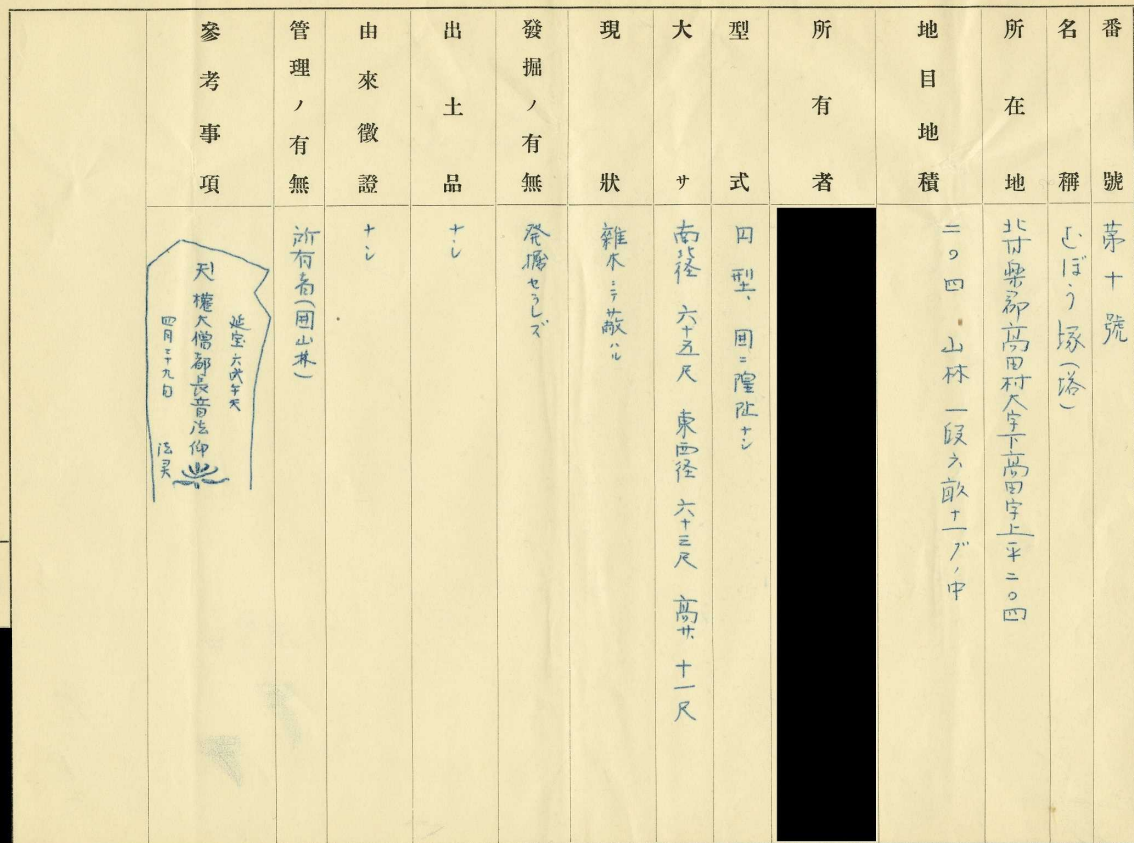 番號
第十號
名稱
むぼう塚(塔)
所在地
北甘楽郡高田村大字下高田字上平二〇四
地目地積
二〇四 山林 一段六畝十一ブノ中
所有者
型式
円型、囲ニ隍阯ナシ
大サ
南北径 六十五尺 東西径 六十三尺 高サ 十一尺
現狀
雜木ニテ蔽ハル
發掘ノ有無
発掘セラレズ
出土品
ナシ
由來徵證
ナシ
管理ノ有無
所有者(囲山林)
參考事項
延宝六戊午天
權大僧都長音法印
四月二十九日